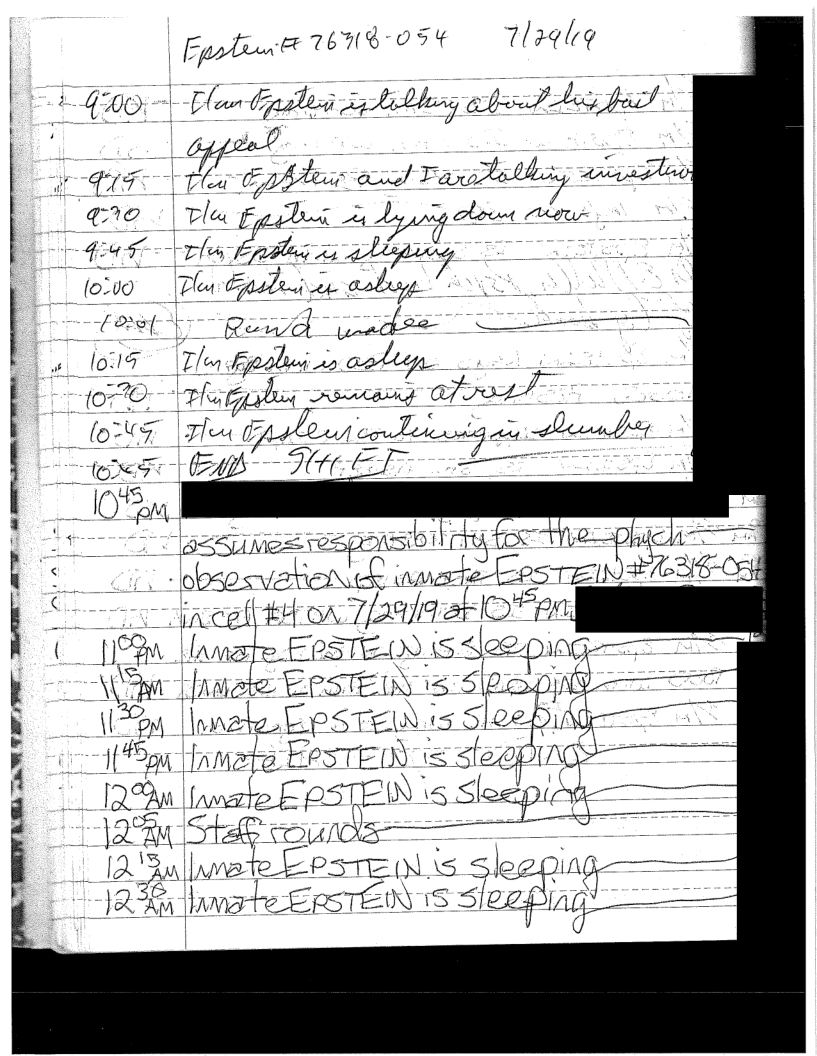 Epstein # 76318-054 7/29/19
9:00 I/m Epstein is talking about his bail
appeal
9:15 I/m Epstein and I are talking
9:30 I/m Epstein is lying down now
9:45 I/m Epstein is sleeping
10:00 I/m Epstein is asleep
10:01 Round made
10:15 I/m Epstein is asleep
10:30 I/m Epstein remains at rest
10:45 I/m Epstein continuing in slumber
10:45 END
10 45 PM
assumes responsibility for the phych
observation of inmate EPSTEIN #76318-054
in cell #4 on 7/29/19 at 10 45 PM.
11 00 PM Inmate EPSTEIN is sleeping
11 15 AM Inmate EPSTEIN is sleeping
11 30 PM Inmate EPSTEIN is sleeping
11 45 PM Inmate EPSTEIN is sleeping
12 00 AM Inmate EPSTEIN is sleeping
12 05 AM Staff rounds
12 15 AM Inmate EPSTEIN is sleeping
12 30 AM Inmate EPSTEIN is sleeping